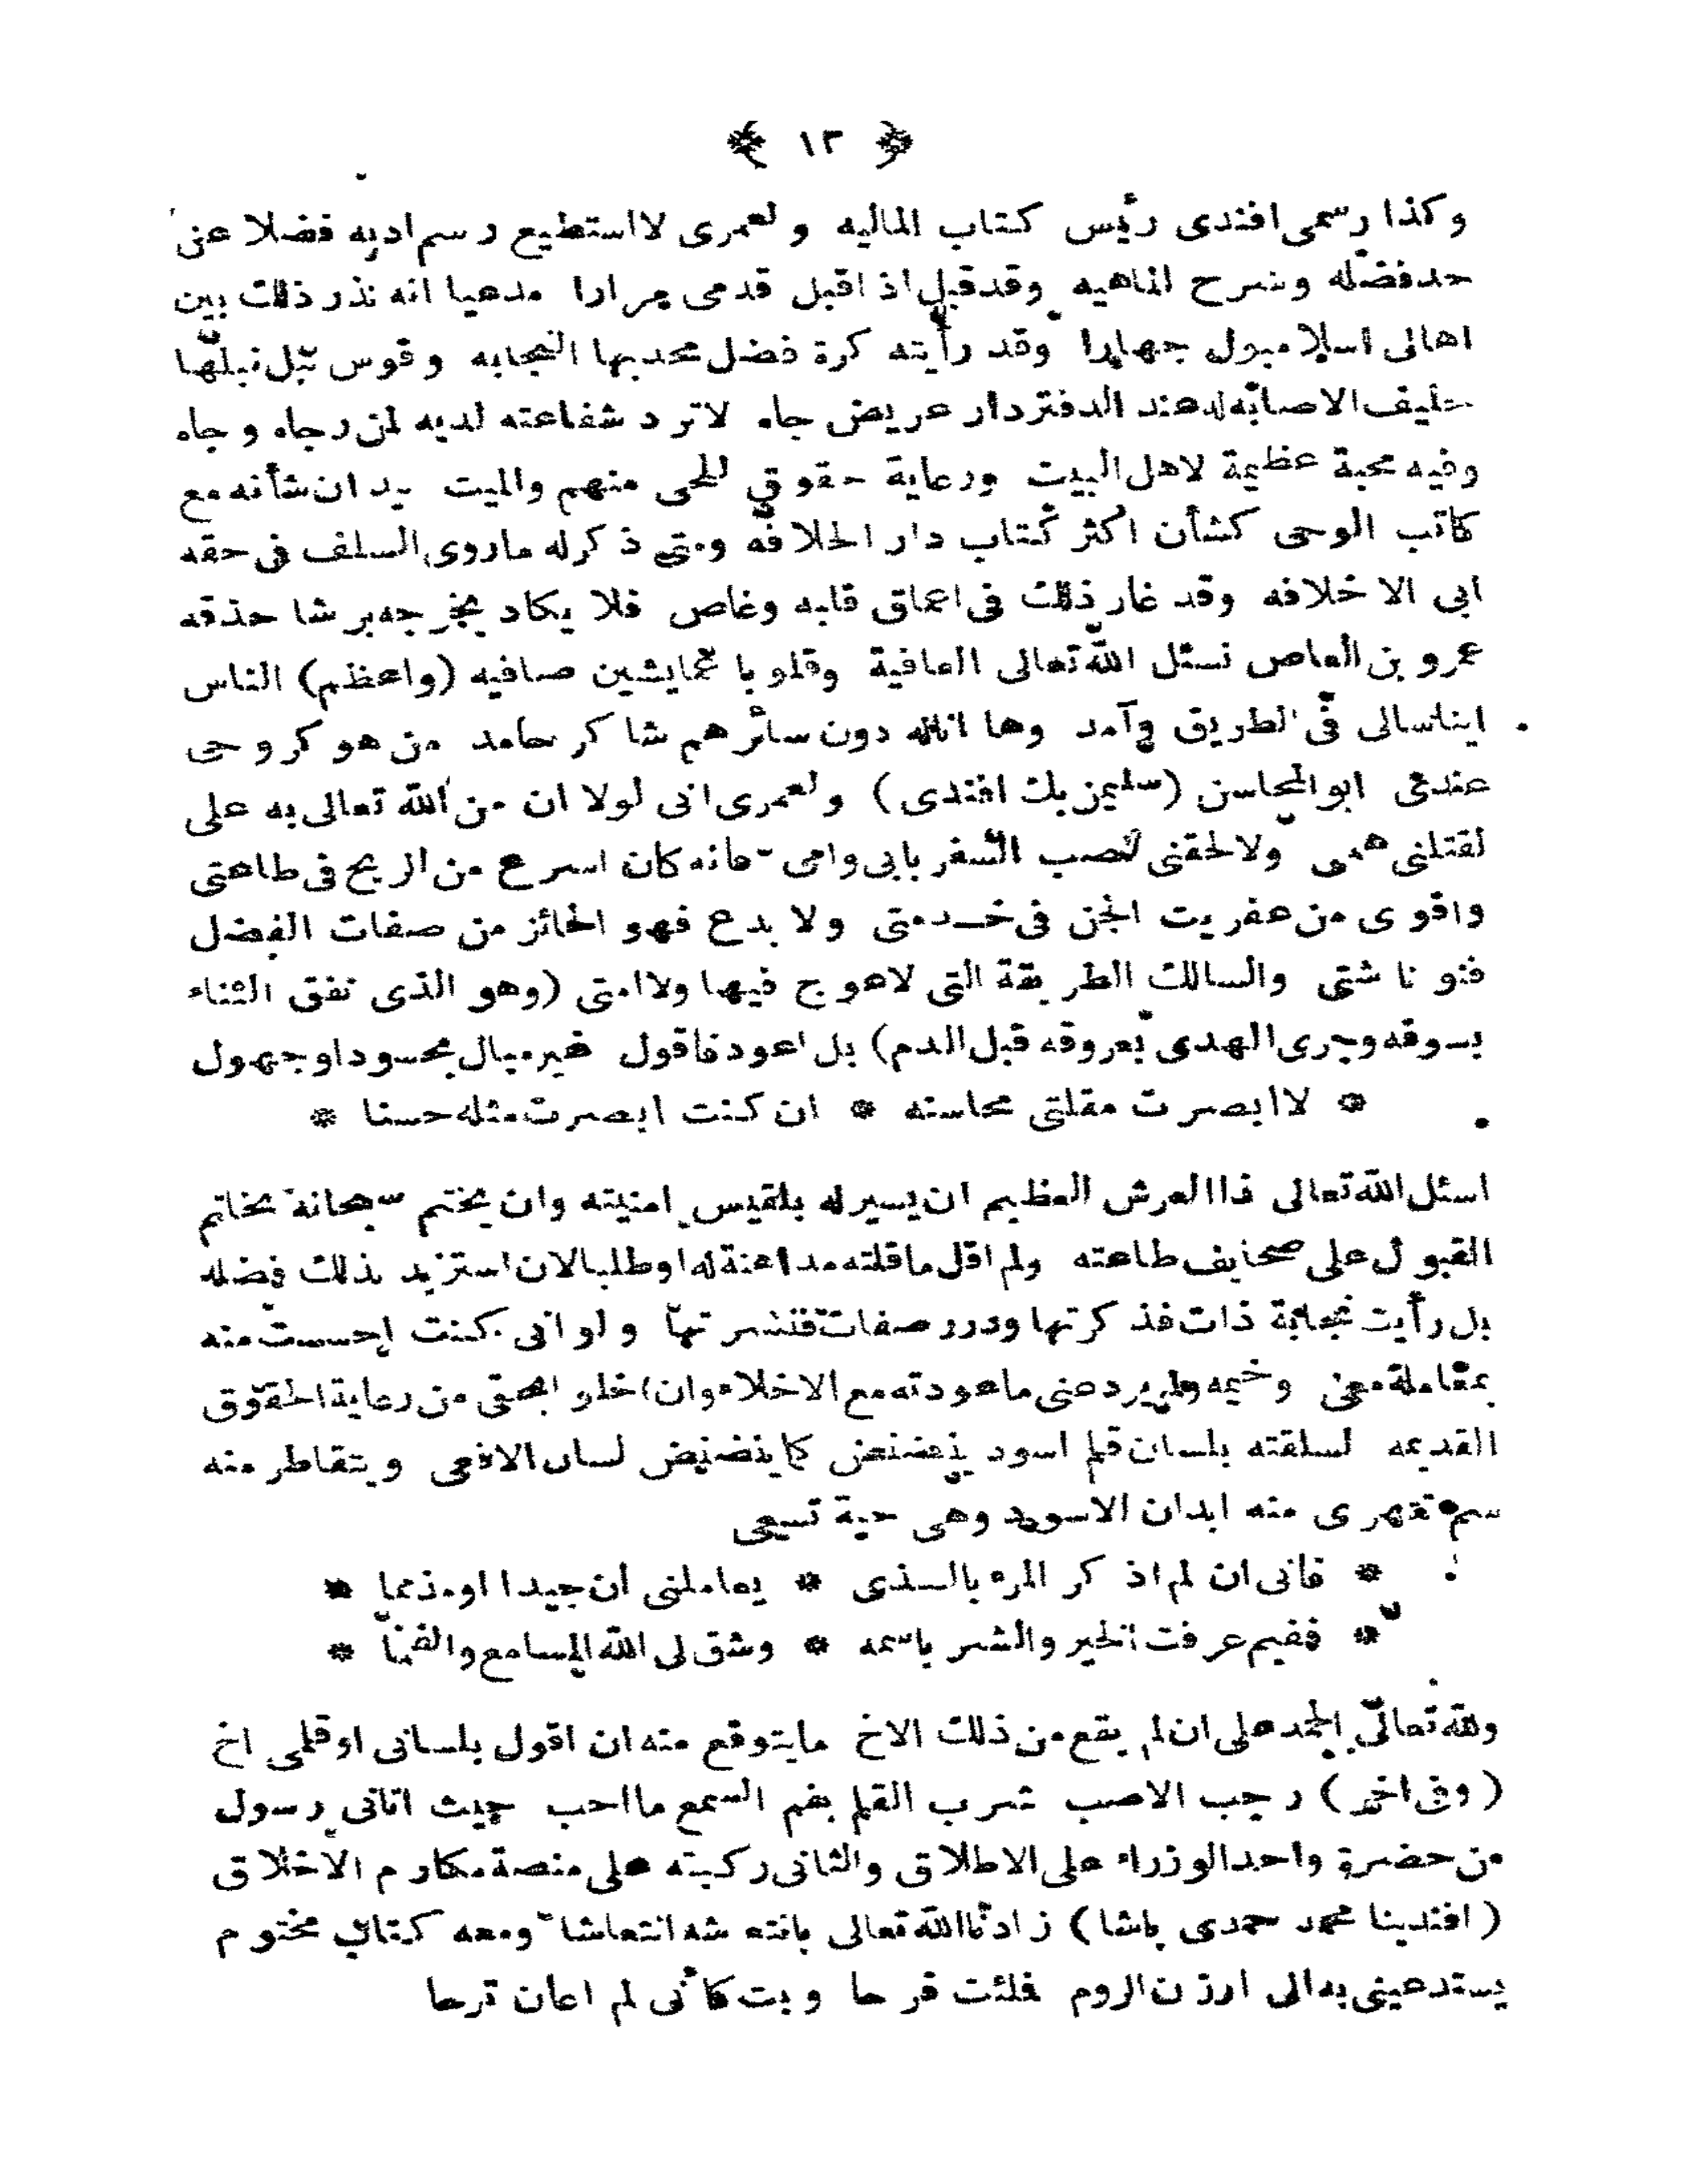 ﴿ ١٣ ﴾
وكذا رسمى افندى رئيس كتاب الماليه ولعمرى لااستطيع رسم ادبه فضلا عن
حد فضله وشرح الماهيه وقد قبل اذ اقبل قدمى مرارا مدعيا انه نذر ذلك بين
اهالى اسلامبول جهارا وقد رأيته كرة فضل محدبها النجابه وقوس نبل نبلها
حليف الاصابه له عند الدفتردار عريض جاه لاترد شفاعته لديه لمن رجاه وجاه
وفيه محبة عظيمة لاهل البيت ورعاية حقوق للحى منهم والميت بيد ان شأنه مع
كاتب الوحى كشأن اكثر كتاب دار الخلافه ومتى ذكر له ماروى السلف فى حقه
ابى الا خلافه وقد غار ذلك فى اعماق قلبه وغاص فلا يكاد يخرجه برشا حذقه
عمرو بن العاص نسئل الله تعالى العافية وقلوبا مما يشين صافيه (واعظم) الناس
ايناسالى فى الطريق وآمد وها انا له دون سائرهم شاكر حامد من هو كروحى
عندى ابوالمحاسن (سليمن بك افندى) ولعمرى انى لولا ان من الله تعالى به على
لقتلنى همى ولالحقنى نصب السفر بابى وامى فانه كان اسرع من الريح فى طاعتى
واقوى من عفريت الجن فى خدمتى ولا بدع فهو الحائز من صفات الفضل
فنونا شتى والسالك الطريقة التى لاعوج فيها ولاامتى (وهو الذى نفق الثناء
بسوقه وجرى الهدى بعروقه قبل الدم) بل اعود فاقول غير مبال بحسود اوجهول
* لاابصرت مقلتى محاسنه * ان كنت ابصرت مثله حسنا *
اسئل الله تعالى ذاالعرش العظيم ان يسيرله بلقيس امنيته وان يختم سبحانه بخاتم
القبول على صحايف طاعته ولم اقل ماقلته مداهنة له اوطلبالان استزيد بذلك فضله
بل رأيت نجابة ذات فذكرتها ودرر صفات فنشرتها ولوانى كنت احسست منه
بمعاملة معى وخيمه ولم يردعنى ماعودته مع الاخلاء وان اخلو ابحقى من رعاية الحقوق
القديمه لسلقته بلسان قلم اسود ينضنض كما ينضنض لسان الافعى ويتقاطر منه
سم تتهرى منه ابدان الاسود وهى حية تسعى
* فانى ان لم اذكر المرء بالذى * يعاملنى ان جيدا اومذمما *
* ففيم عرفت الخير والشر باسمه * وشق لى الله المسامع والفما *
ولله تعالى الحمد على ان لم يقع من ذلك الاخ مايتوقع منه ان اقول بلسانى اوقلمى اخ
(وفى اخر) رجب الاصب شرب القلم بفم السمع مااحب حيث اتانى رسول
من حضرة واحد الوزراء على الاطلاق والثانى ركبته على منصة مكارم الاخلاق
(افندينا محمد حمدى پاشا) زادنا الله تعالى بانتعاشه انتعاشا ومعه كتاب مختوم
يستدعينى به الى ارزن الروم فلئت فرحا وبت كأنى لم اعان ترحا